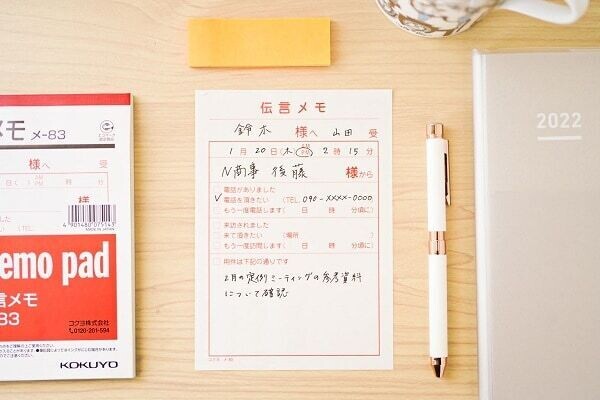 伝言メモ
鈴木 様へ 山田 受
1月20日(木) AM PM 2時15分
N商事 後藤 様から
電話がありました
✓電話を頂きたい (TEL. 090-XXXX-0000)
もう一度電話します( 日 時 分頃に)
来訪されました
来て頂きたい (場所 )
もう一度訪問します( 日 時 分頃に)
用件は下記の通りです
2月の定例ミーティングの参考資料
について確認
コクヨ メ-83
メモ メ-83
様へ 受
日( ) AM PM 時 分
様から
4901480075143
MADE IN JAPAN
emo pad
伝言メモ
-83
コクヨ株式会社
0120-201-594
KOKUYO
2022